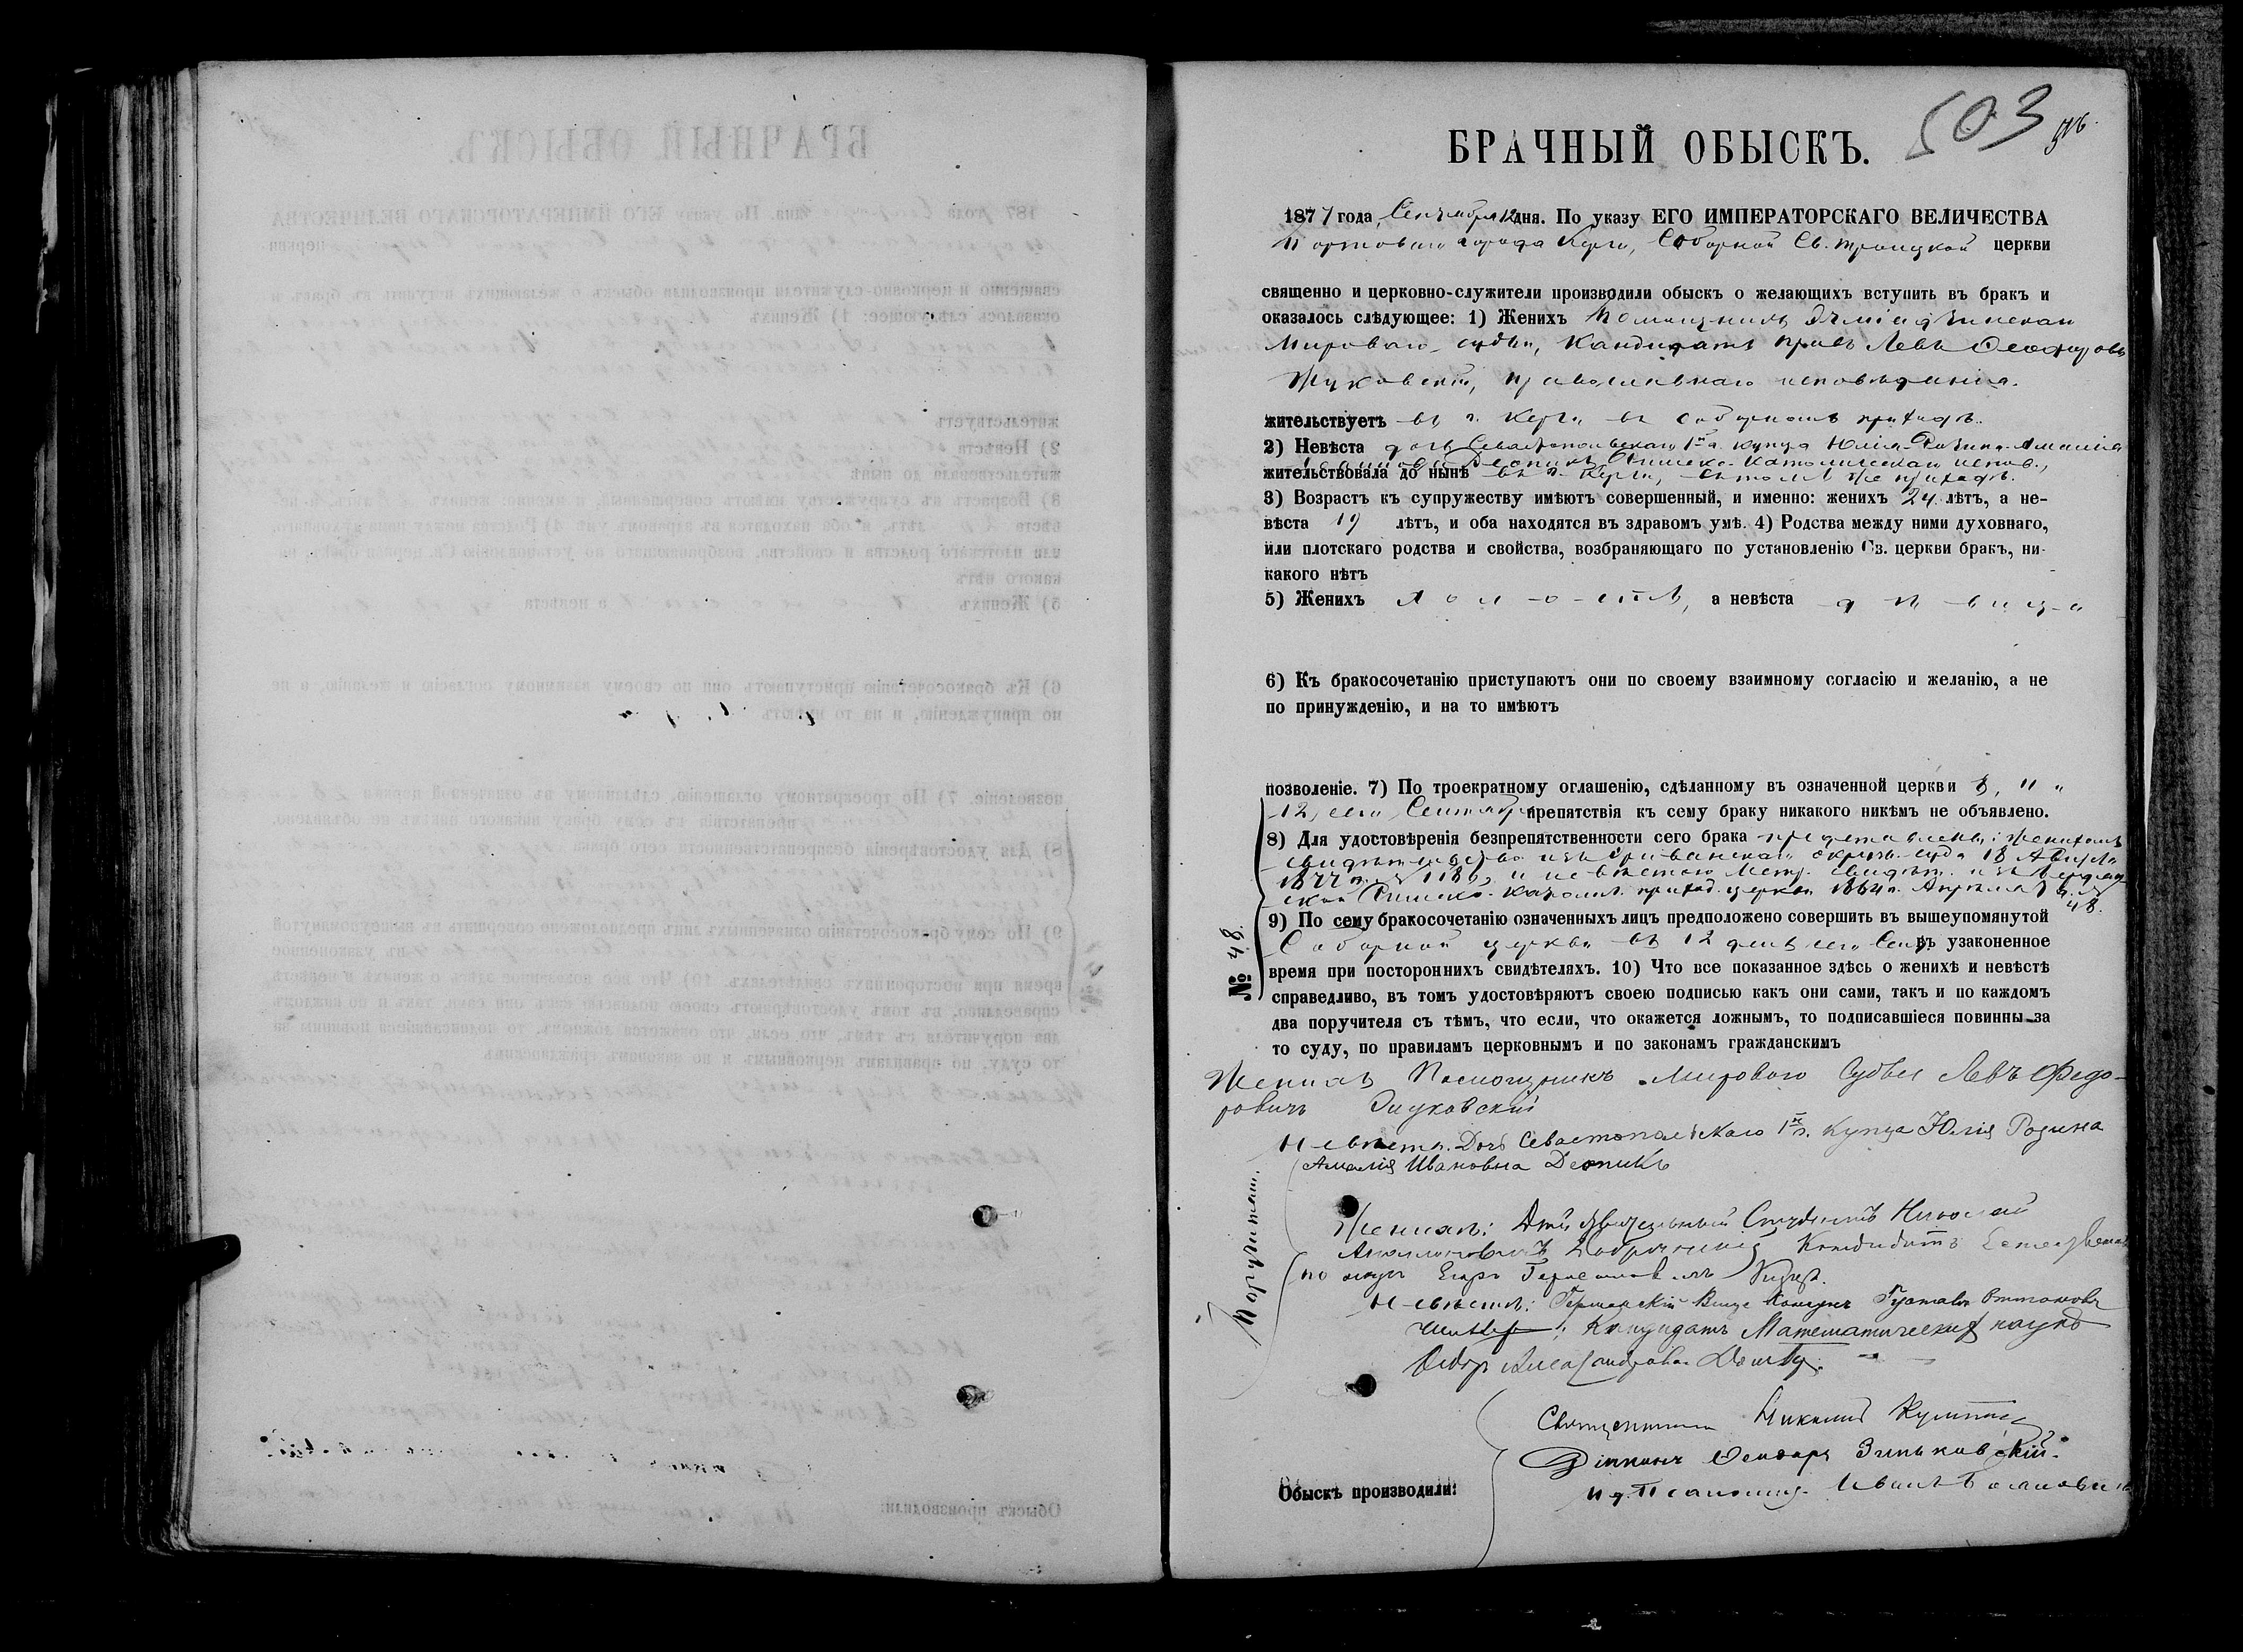 БРАЧНЫЙ ОБЫСКЪ.
503
1877 года, Сентября 12 дня. По указу ЕГО ИМПЕРАТОРСКАГО ВЕЛИЧЕСТВА
Портоваго города Керчи, Соборной Св. Троицкой церкви
священно и церковно-служители производили обыскъ о желающихъ вступить въ бракъ и
оказалось слѣдующее: 1) Женихъ Помощникъ Эчміадзинскаго
Мироваго судьи, Кандидатъ правъ Левъ Ѳеодоровъ
Жуковскій, православнаго исповѣданія.
жительствуетъ въ г. Керчи въ соборномъ приходѣ.
2) Невѣста дочь Севастопольскаго 1й г. купца Юлія-Розина-Амалія
Римско-Католическаго испов.,
жительствовала до нынѣ въ г. Керчи, въ томъ же приходѣ.
3) Возрастъ къ супружеству имѣютъ совершенный, и именно: женихъ 24 лѣтъ, а не-
вѣста 19 лѣтъ, и оба находятся въ здравомъ умѣ. 4) Родства между ними духовнаго,
или плотскаго родства и свойства, возбраняющаго по установленію Св. церкви бракъ, ни-
какого нѣтъ
5) Женихъ холостъ, а невѣста дѣвица
6) Къ бракосочетанію приступаютъ они по своему взаимному согласію и желанію, а не
по принужденію, и на то имѣютъ
позволеніе. 7) По троекратному оглашенію, сдѣланному въ означенной церкви 8, 11 и
12, сего Сентября препятствія къ сему браку никакого никѣмъ не объявлено.
8) Для удостовѣренія безпрепятственности сего брака представлены: Женихомъ
свидѣтельство изъ Эриванскаго окружн. суда 18
1877 г. № 1186, и невѣстою Метр. свидѣт. изъ Бердянской
Римско-Катол. приход. церкви 1864 г. Апрѣля
№ 48.
48.
9) По сему бракосочетанію означенныхъ лицъ предположено совершить въ вышеупомянутой
Соборной церкви въ 12 день сего Сент. въ узаконенное
время при постороннихъ свидѣтеляхъ. 10) Что все показанное здѣсь о женихѣ и невѣстѣ
справедливо, въ томъ удостовѣряютъ своею подписью какъ они сами, такъ и по каждомъ
два поручителя съ тѣмъ, что если, что окажется ложнымъ, то подписавшіеся повинны за
то суду, по правиламъ церковнымъ и по законамъ гражданскимъ
Женихъ Помощникъ Мирового Судьи Левъ Федо-
ровичъ Жуковскій
Невѣста. Дочь Севастопольскаго 1й г. Купца Юлія Розина
Амалія Ивановна
Поручители.
Женихѣ: Дѣйствительный Студентъ Николай
Кандидатъ Естествен.
наукъ Егоръ
Невѣстѣ: Германскій Вице Консулъ Густавъ Оттоновъ
Кандидатъ Математическихъ наукъ
Ѳедоръ Александровъ
Священникъ
Діаконъ Ѳеодоръ Зиньковскій.
Обыскъ производили:
И. д. Псаломщ. Иванъ